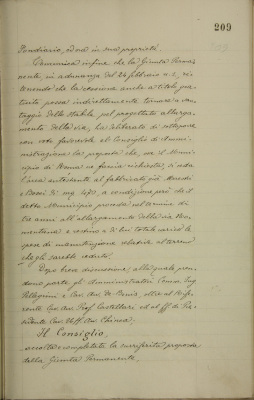 209
Fondiario, ed ora in sua proprietà.
Comunica infine che la Giunta Perma-
nente, in adunanza del 24 febbraio u.s., ri-
tenendo che la cessione anche a titolo gra-
tuito possa indirettamente tornare a van-
taggio dello stabile, pel progettato allarga-
mento della via, ha deliberato di sottoporre
con voto favorevole al Consiglio di Ammi-
nistrazione la proposta che, se il Muni-
cipio di Roma ne faccia richiesta, si ceda
l'area antistante al fabbricato già
e Bossi di mq. a condizione però che il
detto Municipio proceda nel termine di
tre anni all'allargamento della via Nomentana
e restino a di lui totale carico le
spese di manutenzione relative al terreno
che gli sarebbe ceduto.
Dopo breve discussione, alla quale pren-
dono parte gli Amministratori Comm. Ing.
Pellegrini e Cav. Avv. De Benis, oltre al Rife-
rente Cav. Avv. Prof. Castellari ed al ff. di Pre-
sidente Cav. Uff. Avv. Chinea;
Il Consiglio,
accolta e completata la surriferita proposta
della Giunta Permanente,